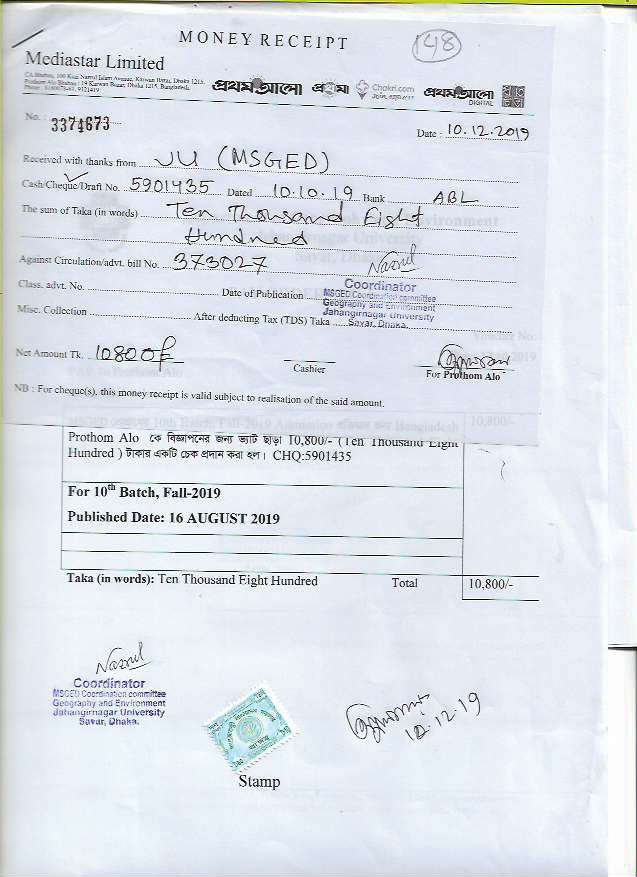 MONEY RECEIPT
148
Mediastar Limited
CA Bhaban, 100 Kazi Nazrul Islam Avenue, Karwan Bazar, Dhaka 1215.
Prothom Alo Bhaban : 19 Karwan Bazar, Dhaka 1215, Bangladesh.
প্রথম আলো প্রথমা Chakri.com প্রথম আলো
DIGITAL
No. : 3374673
Date : 10.12.2019
Received with thanks from JU (MSGED)
Cash/Cheque/Draft No. 5901435 Dated 10.10.19 Bank ABL
The sum of Taka (in words) Ten Thousand Eight
Hundred
Against Circulation/advt. bill No. 373027
Nazrul
Coordinator
MSGED Coordination committee
Geography and Environment
Jahangirnagar University
Savar, Dhaka.
Class. advt. No. Date of Publication
Misc. Collection After deducting Tax (TDS) Taka
Net Amount Tk. 10800/=
Cashier
For Prothom Alo
NB : For cheque(s), this money receipt is valid subject to realisation of the said amount.
10,800/-
Prothom Alo কে বিজ্ঞাপনের জন্য ভ্যাট ছাড়া 10,800/- (Ten Thousand Eight
Hundred ) টাকার একটি চেক প্রদান করা হল। CHQ:5901435
For 10th Batch, Fall-2019
Published Date: 16 AUGUST 2019
Taka (in words): Ten Thousand Eight Hundred Total 10,800/-
Nazrul
Coordinator
MSGED Coordination committee
Geography and Environment
Jahangirnagar University
Savar, Dhaka.
10.12.19
Stamp